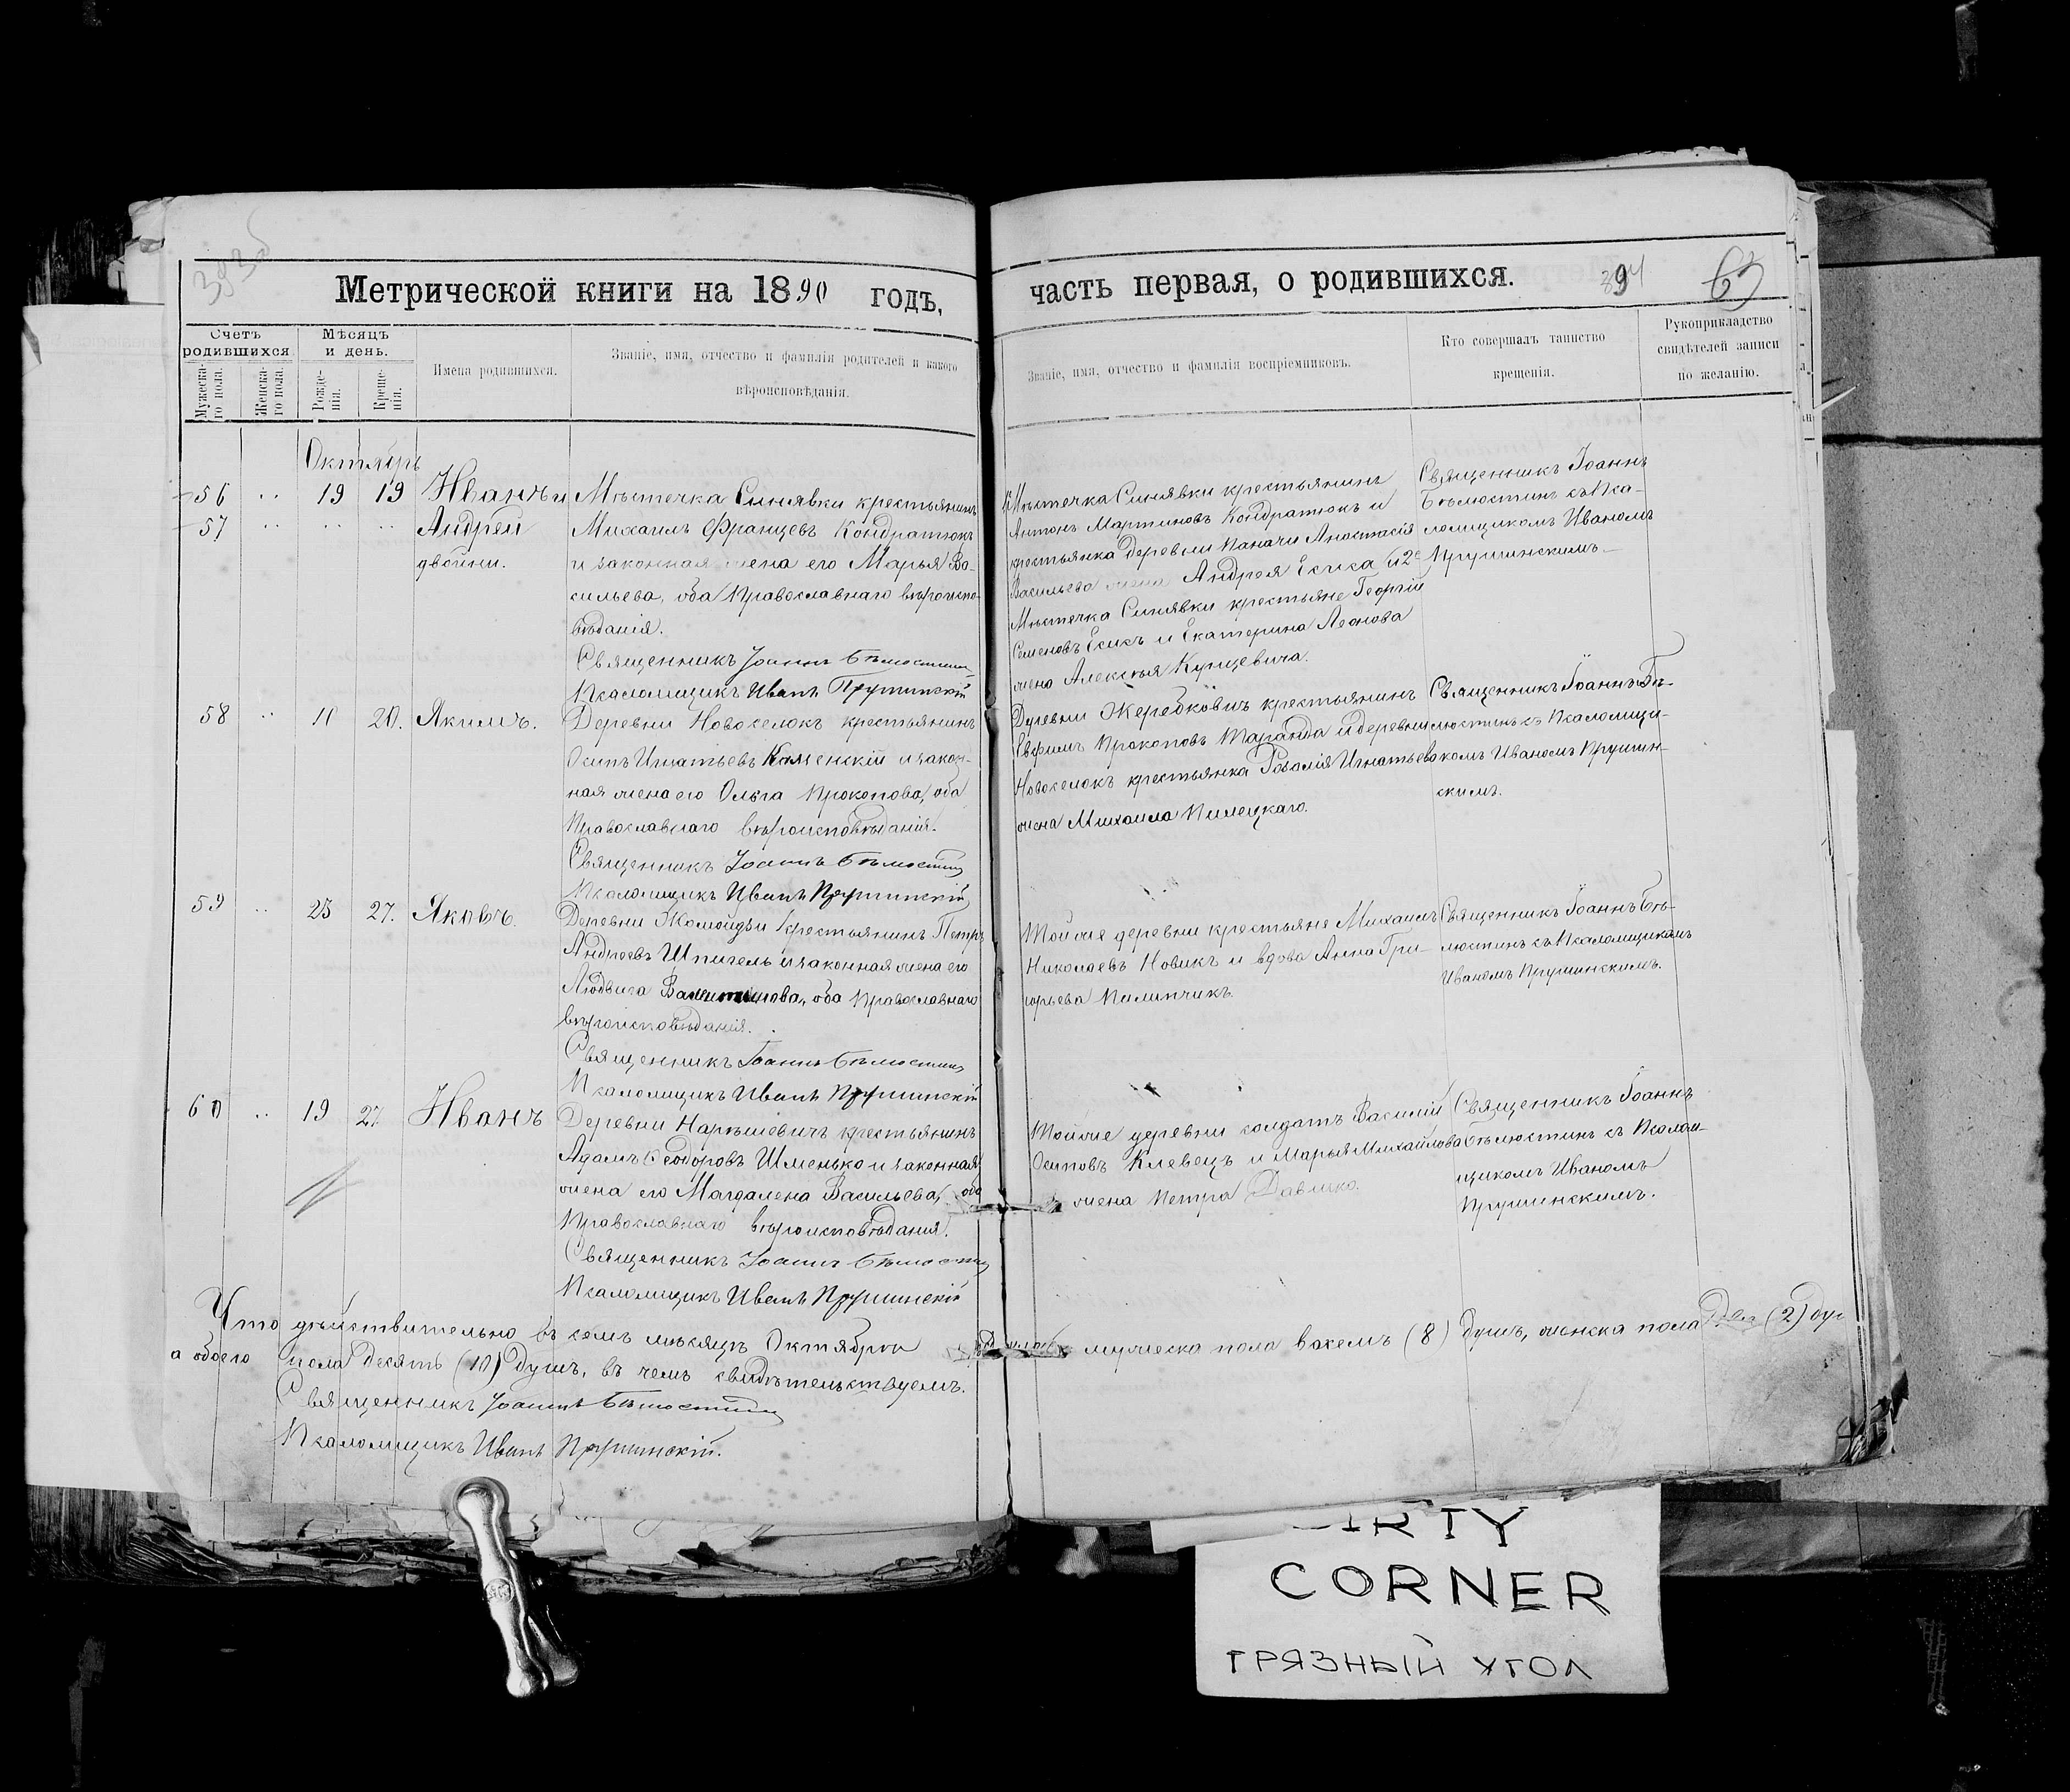 393об
Метрической книги на 1890 годъ,
Счетъ родившихся
Мѣсяцъ и день.
Мужеска-го пола.
Женска-го пола.
Рожде-нія.
Креще-нія.
Имена родившихся.
Званіе, имя, отчество и фамилія родителей и какого
вѣроисповѣданія.
Октябрь
56 .. 19 19 Иванъ и Мѣстечка Синявки крестьянинъ
57 .. .. .. Андрей Михаилъ Францевъ Кондратюкъ
двойни. и законная жена его Марья Ва-
сильева, оба Православнаго вѣроиспо-
вѣданія.
Священникъ Іоаннъ Бѣлюстинъ
Псаломщикъ Иванъ Прушинскій
58 .. 10 20. Якимъ. Деревни Новоселокъ крестьянинъ
Осипъ Игнатьевъ Каменскій и закон-
ная жена его Ольга Прокопова, оба
Православнаго вѣроисповѣданія.
Священникъ Іоаннъ Бѣлюстинъ
Псаломщикъ Иванъ Прушинскій
59 .. 25 27. Яковъ. Деревни Жомойдзи крестьянинъ Петръ
Андреевъ Шпигель и законная жена его
Людвига Валентинова, оба Православнаго
вѣроисповѣданія.
Священникъ Іоаннъ Бѣлюстинъ
Псаломщикъ Иванъ Прушинскій
60 .. 19 27 Иванъ Деревни Нарѣшевичъ крестьянинъ
Адамъ Ѳеодоровъ Шменько и законная
жена его Магдалена Васильева, оба
Православнаго вѣроисповѣданія.
Священникъ Іоаннъ Бѣлюстинъ
Псаломщикъ Иванъ Прушинскій
Что дѣйствительно въ семъ мѣсяцѣ Октябрѣ
а обоего пола десять (10) душъ, въ чемъ свидѣтельствуемъ.
Священникъ Іоаннъ Бѣлюстинъ
Псаломщикъ Иванъ Прушинскій.
часть первая, о родившихся.
394
63
Званіе, имя, отчество и фамилія воспріемниковъ.
Кто совершалъ таинство
крещенія.
Рукоприкладство
свидѣтелей записи
по желанію.
Мѣстечка Синявки крестьянинъ
Антонъ Мартиновъ Кондратюкъ и
крестьянка деревни Паначи Анастасія
Васильева жена Андрея Есиса и 2е
Мѣстечка Синявки крестьяне Георгій
Семеновъ Есикъ и Екатерина Леонова
жена Алексѣя Купцевича.
Священникъ Іоаннъ
Бѣлюстинъ съ Пса-
ломщикомъ Иваномъ
Прушинскимъ.
Деревни Жеребковичъ крестьянинъ
Евфимъ Прокоповъ Таранда и деревни
Новоселокъ крестьянка Розалія Игнатьева
жена Михаила Пилецкаго.
Священникъ Іоаннъ Бѣ-
люстинъ съ Псаломщи-
комъ Иваномъ Прушин-
скимъ.
Той же деревни крестьяне Михаилъ
Николаевъ Новикъ и вдова Анна Гри-
горьева Пилипчикъ.
Священникъ Іоаннъ Бѣ-
люстинъ съ Псаломщикомъ
Иваномъ Прушинскимъ.
Той же деревни солдатъ Василій
Осиповъ Клевецъ и Марья Михайлова
жена Петра Давидко.
Священникъ Іоаннъ
Бѣлюстинъ съ Псалом-
щикомъ Иваномъ
Прушинскимъ.
мужеска пола восемь (8) душъ, женска пола два (2) душ
DIRTY
CORNER
ГРЯЗНЫЙ УГОЛ